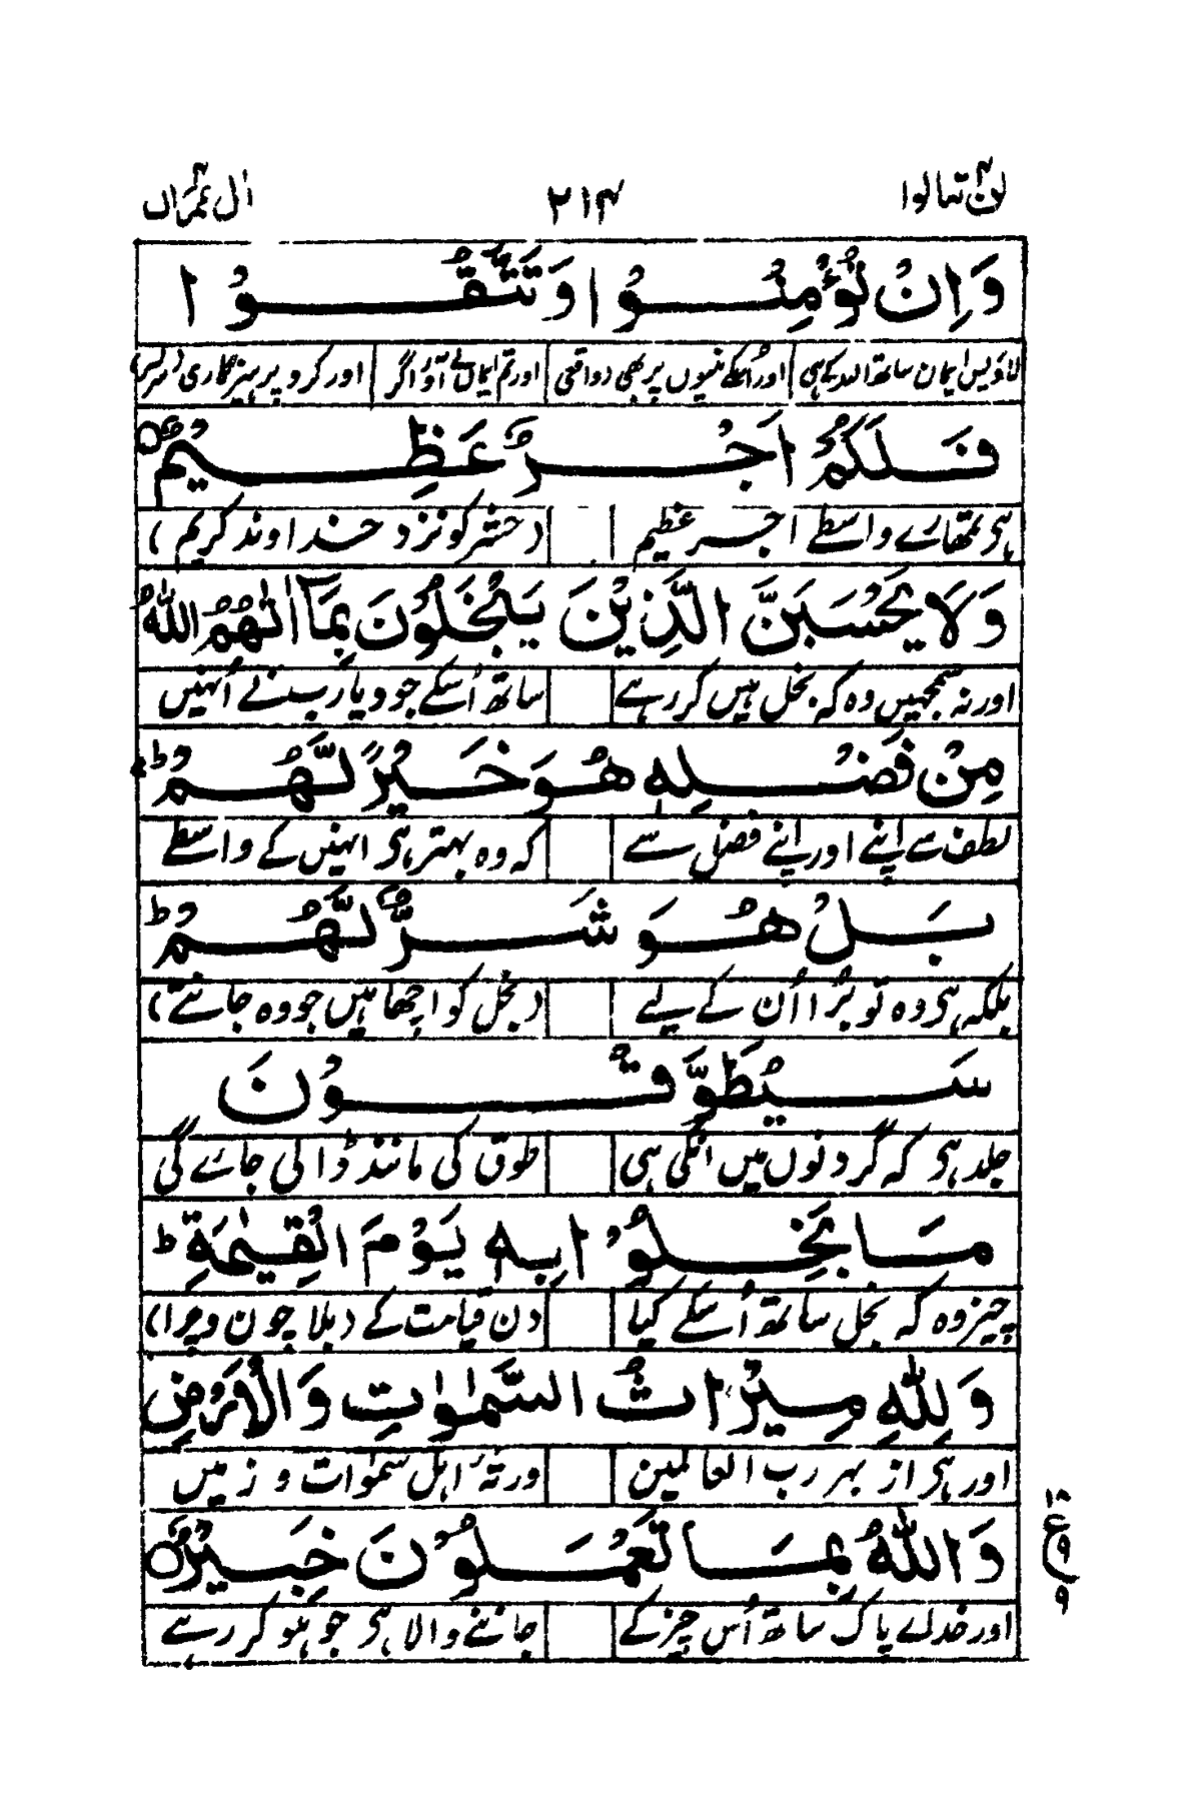 لن تنالوا ۴ ۲۱۴ اٰل عمرٰن ۳
وَاِنْ تُؤْمِنُوْا وَتَتَّقُوْا
لاؤ پس ایمان ساتھ اللہ کے ہی اور اُسکے نبیوں پر بھی (واقعی اور تم ایماں لے آؤ اگر اور کرو پرہیزگاری
فَلَكُمْ اَجْرٌ عَظِيْمٌ ۝
ہی تمھارے واسطے اجر عظیم (حشر کو نزد خداوند کریم)
وَلَا يَحْسَبَنَّ الَّذِيْنَ يَبْخَلُوْنَ بِمَآ اٰتٰىهُمُ اللّٰهُ
اور نہ سمجھیں وہ کہ بخل ہیں کر رہے ساتھ اُسکے جو دیا رب نے اُنہیں
مِنْ فَضْلِهٖ هُوَ خَيْرًا لَّهُمْ ؕ
لطف سے اپنے اور اپنے فضل سے کہ وہ بہتر ہی انہیں کے واسطے
بَلْ هُوَ شَرٌّ لَّهُمْ ؕ
بلکہ ہی وہ تو بُرا اُن کے لیے (بخل کو اچھا ہیں جو وہ جانتے)
سَيُطَوَّقُوْنَ
جلد ہی کہ گردنوں میں انکی ہی طوق کی مانند ڈالی جائے گی
مَا بَخِلُوْا بِهٖ يَوْمَ الْقِيٰمَةِ ؕ
چیز وہ کہ بخل ساتھ اُسکے کیا دن قیامت کے (بلا چون و چرا)
وَلِلّٰهِ مِيْرَاثُ السَّمٰوٰتِ وَالْاَرْضِ
اور ہی از بہر رب العالمین ورثہٴ اہل سمٰوات و زمیں
وَاللّٰهُ بِمَا تَعْمَلُوْنَ خَبِيْرٌ ۝
اور خدائے پاک ساتھ اُس چیز کے جاننے والا ہی جو ہو کر رہے
۱۰ ع ۹ ۹